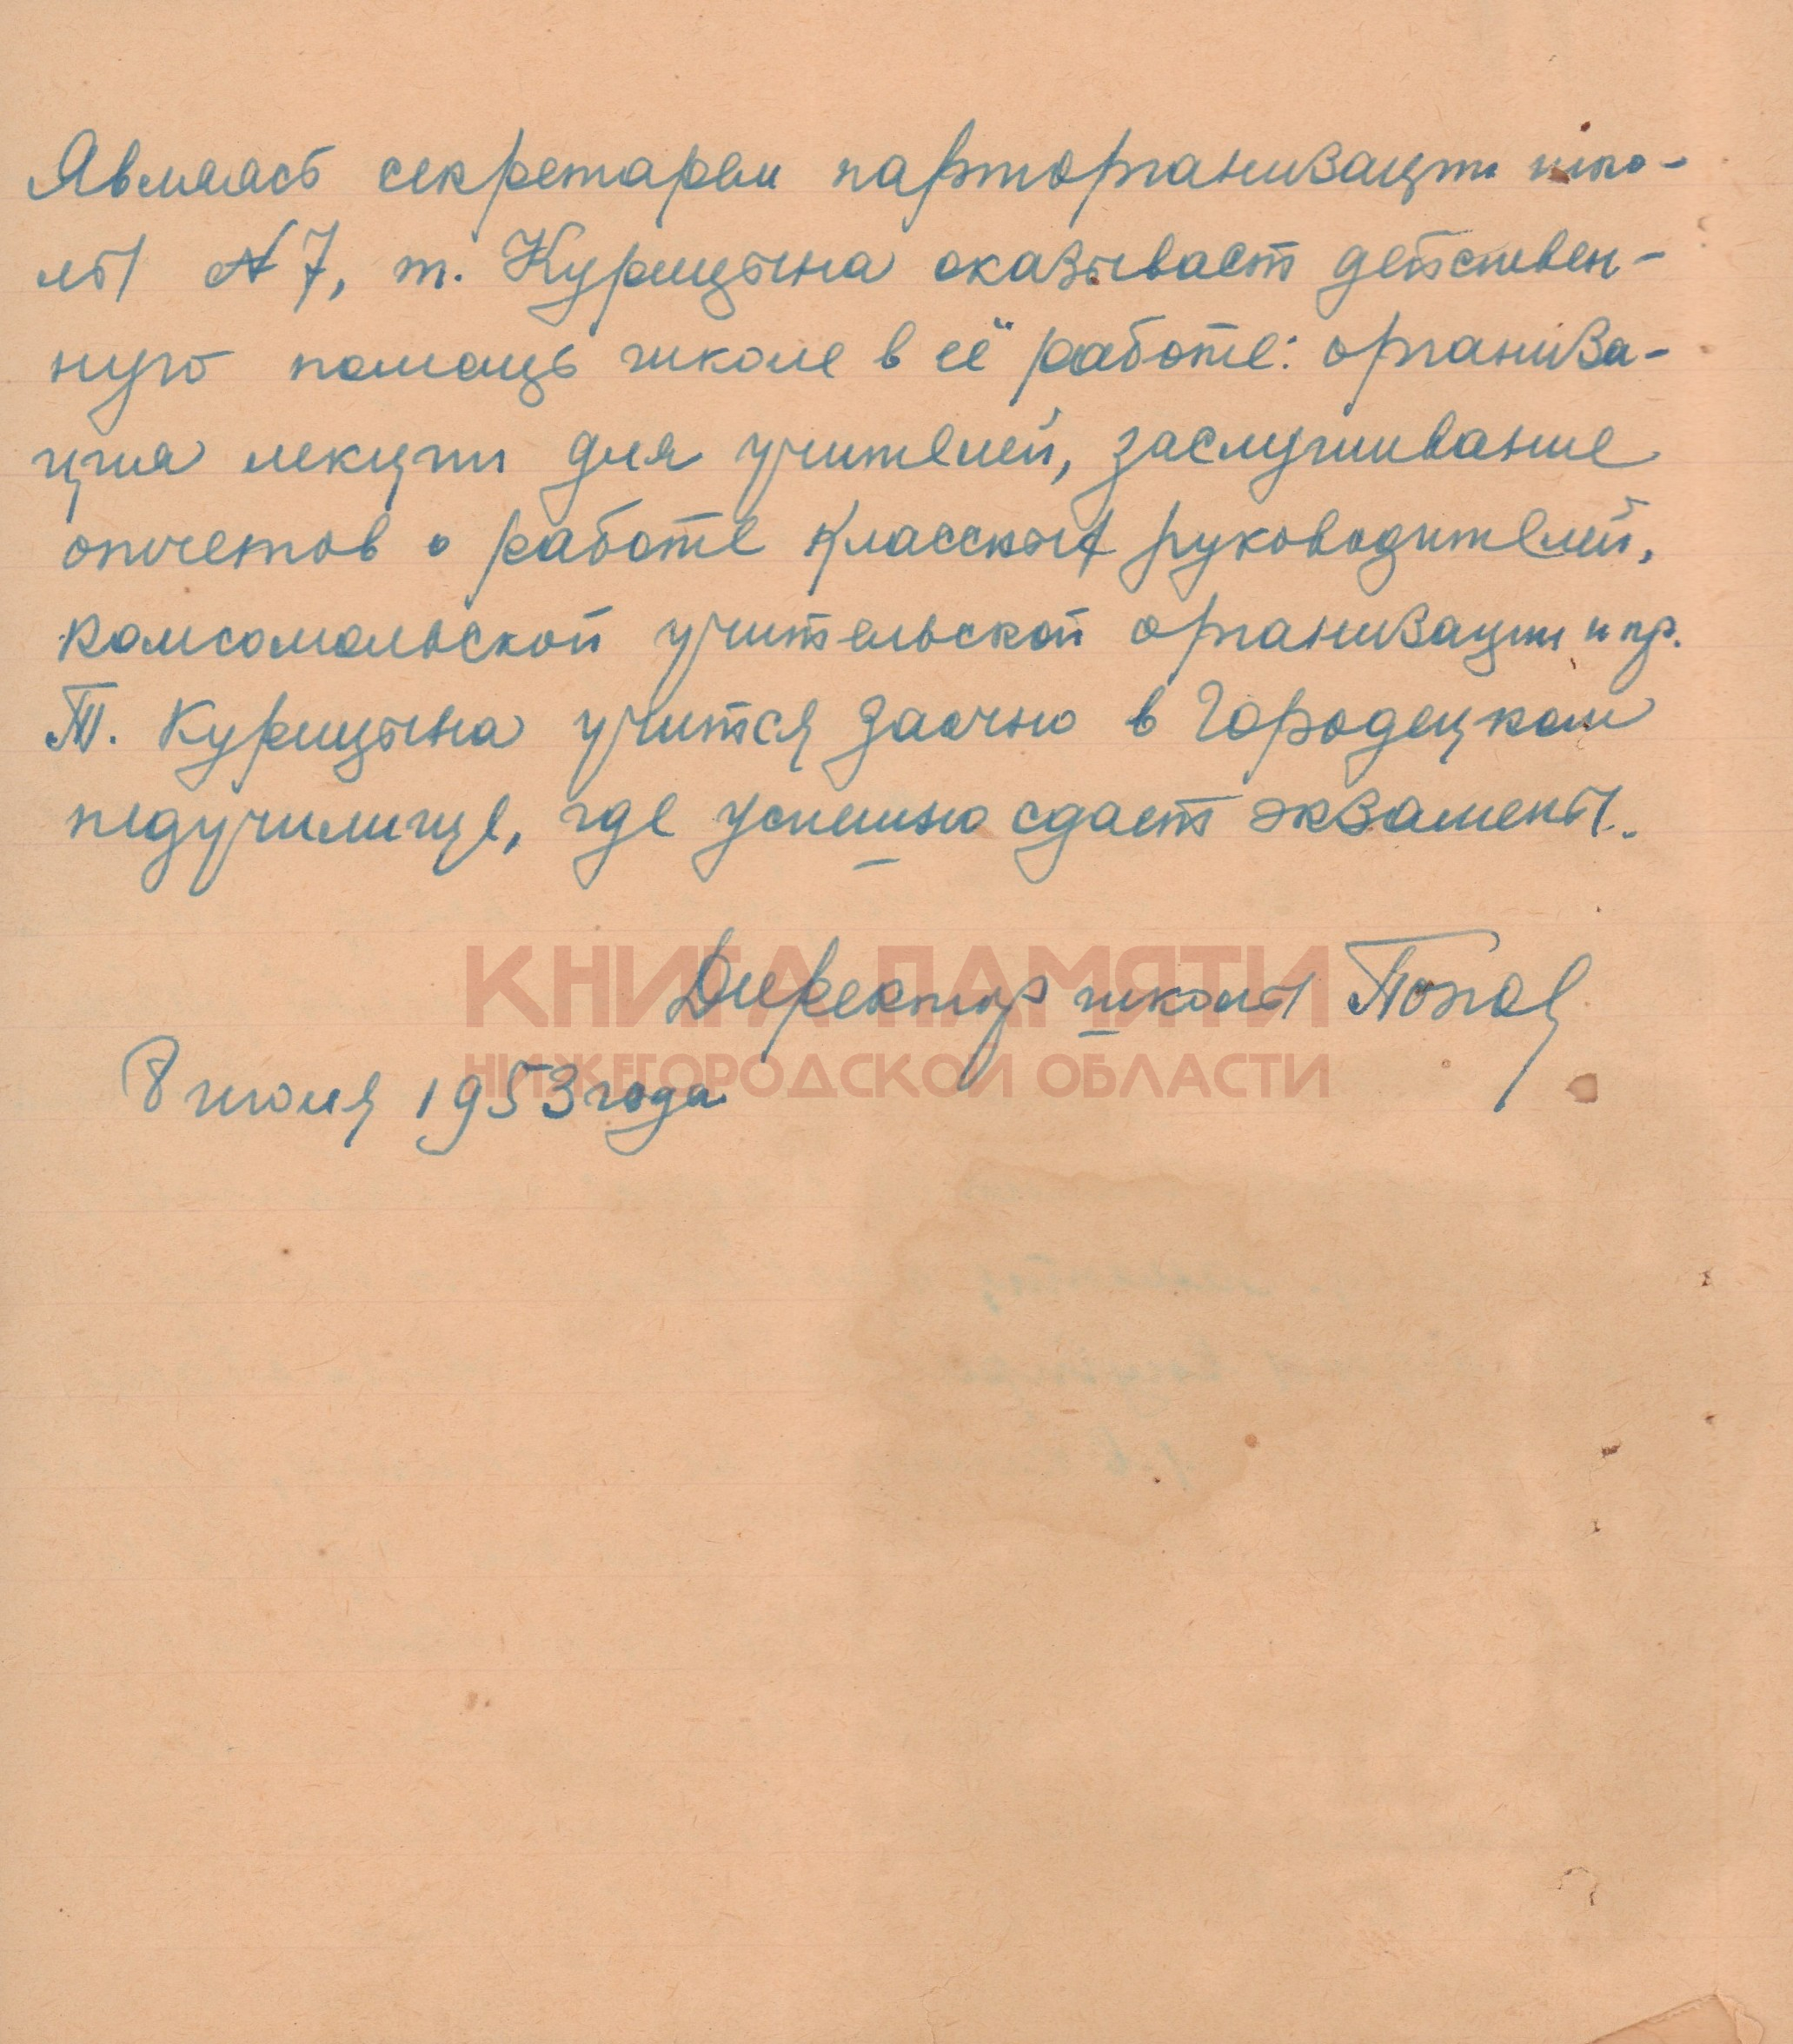 Являясь секретарем парторганизации шко-
лы № 7, т. Курицына оказывает действен-
ную помощь школе в её работе: организа-
ция лекции для учителей, заслушивание
отчетов о работе классных руководителей,
комсомольской учительской организации и пр.
Т. Курицына учится заочно в Городецком
педучилище, где успешно сдает экзамены.
Директор школы Попов
8 июля 1953 года
КНИГА ПАМЯТИ
НИЖЕГОРОДСКОЙ ОБЛАСТИ